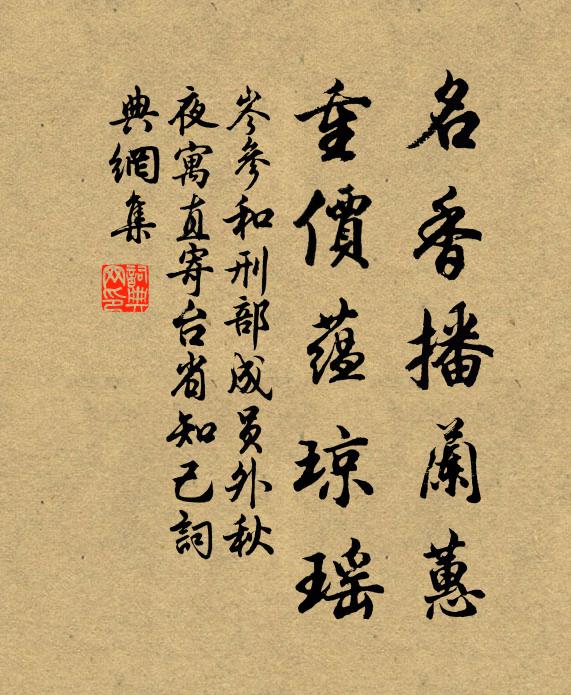 名香播蘭蕙
重價蘊琼瑶
岑參和刑部成員外秋
夜寓直寄台省知己詞
典網集
詞典網印